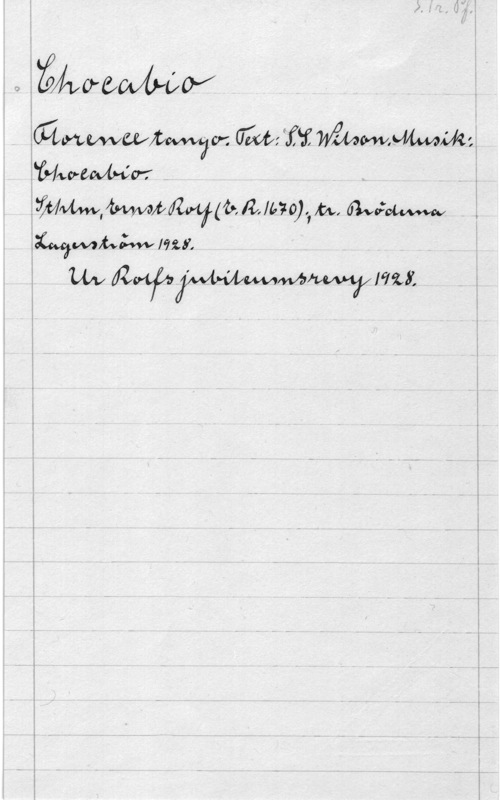 S. Tr. Pf.
Chocabio
Florence tango. Text: S.S. Wilson. Musik:
Chocabio.
Sthlm, Ernst Rolf (E.R. 1670); tr. Bröderna
Lagerström 1928.
Ur Rolfs jubileumsrevy 1928.